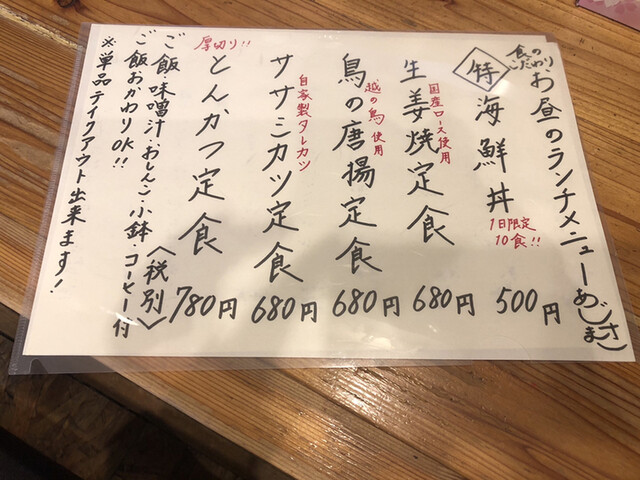 食のこだわり
お昼のランチメニュー
特 海鮮丼 500円
1日限定
10食!!
生姜焼定食 680円
国産ロース使用
鳥の唐揚定食 680円
越の鳥使用
ササミカツ定食 680円
自家製タレカツ
厚切り!!
とんかつ定食 780円
<税別>
ご飯・味噌汁・おしんこ・小鉢・コーヒー付
ご飯おかわりOK!!
※単品テイクアウト出来ます!